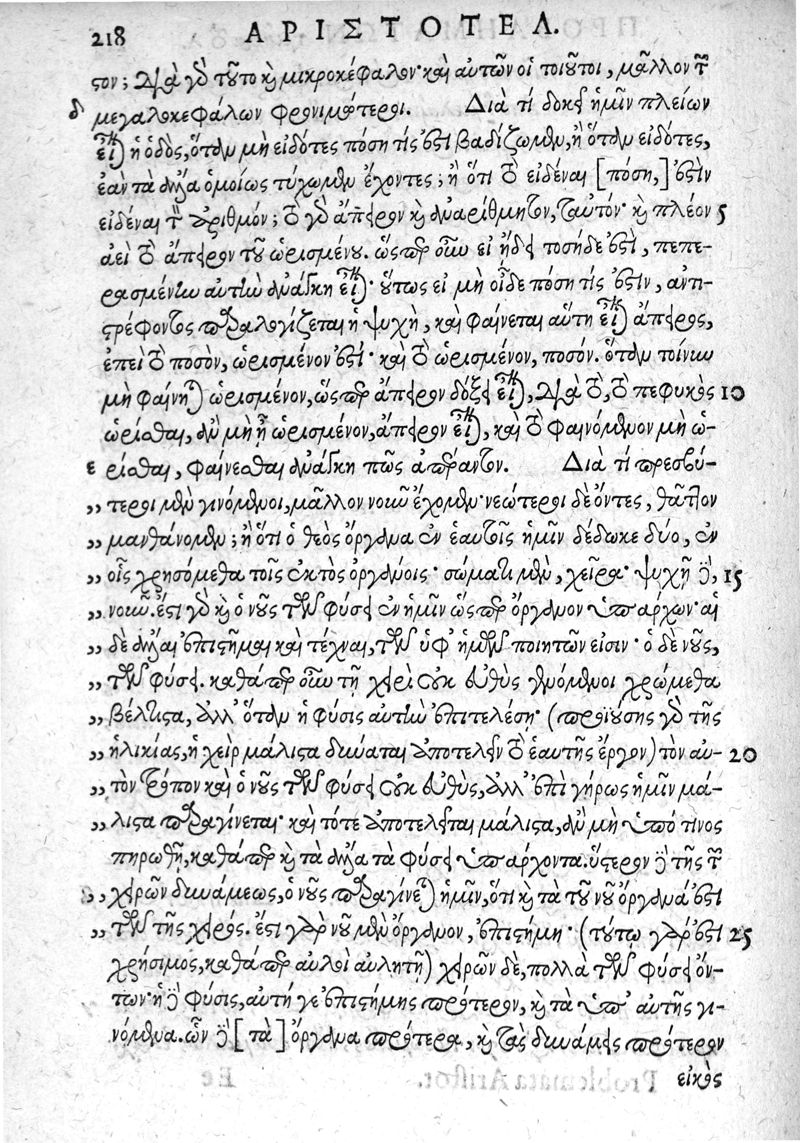 218 ΑΡΙΣΤΟΤΕΛ.
στον; διὰ γὰρ τοῦτο καὶ μικροκέφαλον· καὶ αὐτῶν οἱ τοιοῦτοι, μᾶλλον τῶν
δ μεγαλοκεφάλων φρονιμώτεροι. Διὰ τί δοκεῖ ἡμῖν πλείων
εἶναι ἡ ὁδὸς, ὅταν μὴ εἰδότες πόση τίς ἐστι βαδίζωμεν, ἢ ὅταν εἰδότες,
ἐὰν τὰ ἄλλα ὁμοίως τύχωμεν ἔχοντες; ἢ ὅτι τὸ εἰδέναι [πόση,] ἐστὶν
εἰδέναι τὸν ἀριθμόν; τὸ γὰρ ἄπειρον καὶ ἀναρίθμητον, ταὐτόν· καὶ πλέον 5
ἀεὶ τὸ ἄπειρον τοῦ ὡρισμένου. ὥσπερ οὖν εἰ ᾔδει τοσήδε ἐστὶ, πεπε-
ρασμένην αὐτὴν ἀνάγκη εἶναι· οὕτως εἰ μὴ οἶδε πόση τίς ἐστιν, ἀντι-
στρέφοντος παραλογίζεται ἡ ψυχὴ, καὶ φαίνεται αὕτη εἶναι ἄπειρος,
ἐπεὶ τὸ ποσὸν, ὡρισμένον ἐστί· καὶ τὸ ὡρισμένον, ποσόν. ὅταν τοίνυν
μὴ φαίνηται ὡρισμένον, ὥσπερ ἄπειρον δόξει εἶναι, διὰ τὸ, τὸ πεφυκὸς 10
ὡρίσθαι, ἂν μὴ ᾖ ὡρισμένον, ἄπειρον εἶναι, καὶ τὸ φαινόμενον μὴ ὡ-
ε ρίσθαι, φαίνεσθαι ἀνάγκη πῶς ἀπέραντον. Διὰ τί πρεσβύ-
„ τεροι μὲν γινόμενοι, μᾶλλον νοῦν ἔχομεν· νεώτεροι δὲ ὄντες, θᾶττον
„ μανθάνομεν; ἢ ὅτι ὁ θεὸς ὄργανα ἐν ἑαυτοῖς ἡμῖν δέδωκε δύο, ἐν
„ οἷς χρησόμεθα τοῖς ἐκτὸς ὀργάνοις· σώματι μὲν, χεῖρα· ψυχῇ δὲ, 15
„ νοῦν. ἔστι γὰρ καὶ ὁ νοῦς τῶν φύσει ἐν ἡμῖν ὥσπερ ὄργανον ὑπάρχων· αἱ
„ δὲ ἄλλαι ἐπιστῆμαι καὶ τέχναι, τῶν ὑφ' ἡμῶν ποιητῶν εἰσιν· ὁ δὲ νοῦς,
„ τῶν φύσει. καθάπερ οὖν τῇ χειρὶ οὐκ εὐθὺς γενόμενοι χρώμεθα
„ βέλτιστα, ἀλλ' ὅταν ἡ φύσις αὐτὴν ἐπιτελέσῃ· (προϊούσης γὰρ τῆς
„ ἡλικίας, ἡ χεὶρ μάλιστα δύναται ἀποτελεῖν τὸ ἑαυτῆς ἔργον) τὸν αὐ- 20
„ τὸν τρόπον καὶ ὁ νοῦς τῶν φύσει οὐκ εὐθὺς, ἀλλ' ἐπὶ γήρως ἡμῖν μά-
„ λιστα παραγίνεται· καὶ τότε ἀποτελεῖται μάλιστα, ἂν μὴ ὑπό τινος
πηρωθῇ, καθάπερ καὶ τὰ ἄλλα τὰ φύσει ὑπάρχοντα. ὕστερον δὲ τῆς τῶν
„ χειρῶν δυνάμεως, ὁ νοῦς παραγίνεται ἡμῖν, ὅτι καὶ τὰ τοῦ νοῦ ὄργανά ἐστι
„ τῶν τῆς χειρός. ἔστι γὰρ νοῦ μὲν ὄργανον, ἐπιστήμη· (τούτῳ γάρ ἐστι 25
χρήσιμος, καθάπερ αὐλοὶ αὐλητῇ) χειρῶν δὲ, πολλὰ τῶν φύσει ὄν-
των· ἡ δὲ φύσις, αὐτή γε ἐπιστήμης πρότερον, καὶ τὰ ὑπ' αὐτῆς γι-
νόμενα. ὧν δὲ [τὰ] ὄργανα πρότερα, καὶ τὰς δυνάμεις πρότερον
εἰκὸς